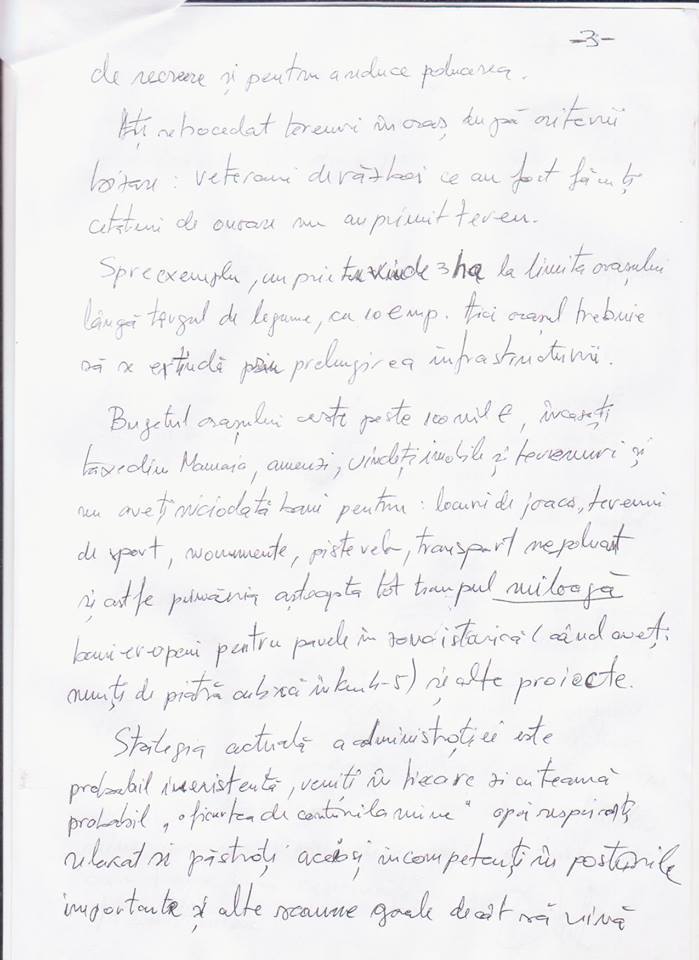 -3-
de recreere și pentru a reduce poluarea.
Ați retrocedat terenuri în oraș după criterii
bizare: veterani de război ce au fost făcuți
cetățeni de onoare nu au primit teren.
Spre exemplu, un vinde 3 ha la limita orașului
lângă târgul de legume, cu 10 € mp. Aici orașul trebuie
să se extindă prin prelungirea infrastructurii.
Bugetul orașului este peste 100 mil €, încasați
taxe din Mamaia, amenzi, vindeți imobile și terenuri și
nu aveți niciodată bani pentru: locuri de joaca, terenuri
de sport, monumente, piste velo, transport nepoluant
și astfe primăria așteapta tot timpul miloagă
bani europeni pentru pavele în zona istorică (când aveți
munți de piatră cubică în) și alte proiecte.
Strategia actuală a administrației este
probabil inexistentă, veniți în fiecare zi cu teamă
probabil „ de conturi la mine" apoi respirați
relaxat și păstrați aceiași incompetenți în posturile
importante și alte scaune goale decât să vină